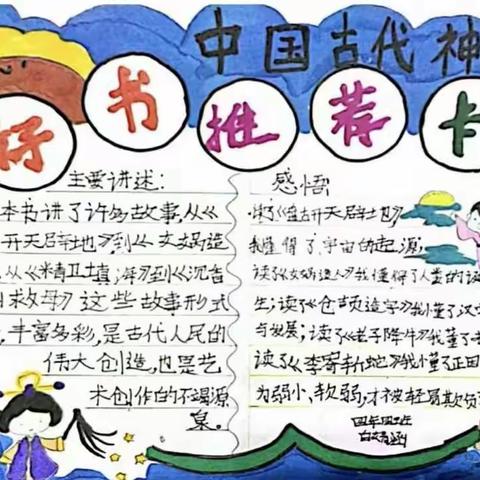 中国古代神
好书推荐卡
主要讲述:
本书讲了许多故事,从《
开天辟地》到《女娲造
从《精卫填海》到《沉香
救母》这些故事形式
,丰富多彩,是古代人民的
伟大创造,也是艺
术创作的不竭源
泉。
感悟
读了《盘古开天辟地》
我懂得了宇宙的起源,
读了《女娲造人》我懂得了人类的诞
生;读了《仓颉造字》我懂了汉
与发展;读了《老子降牛》我懂了
读了《李寄斩蛇》我懂了正因
为弱小、软弱,才被轻易欺负
四年四班